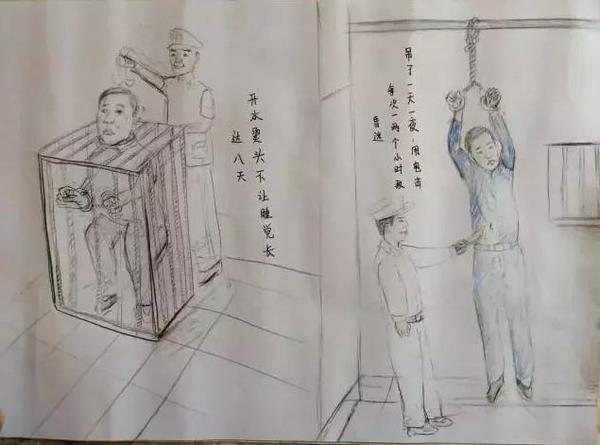 开水烫头不让睡觉长
达八天
吊了一天一夜,用电击
每次一两个小时致
昏迷